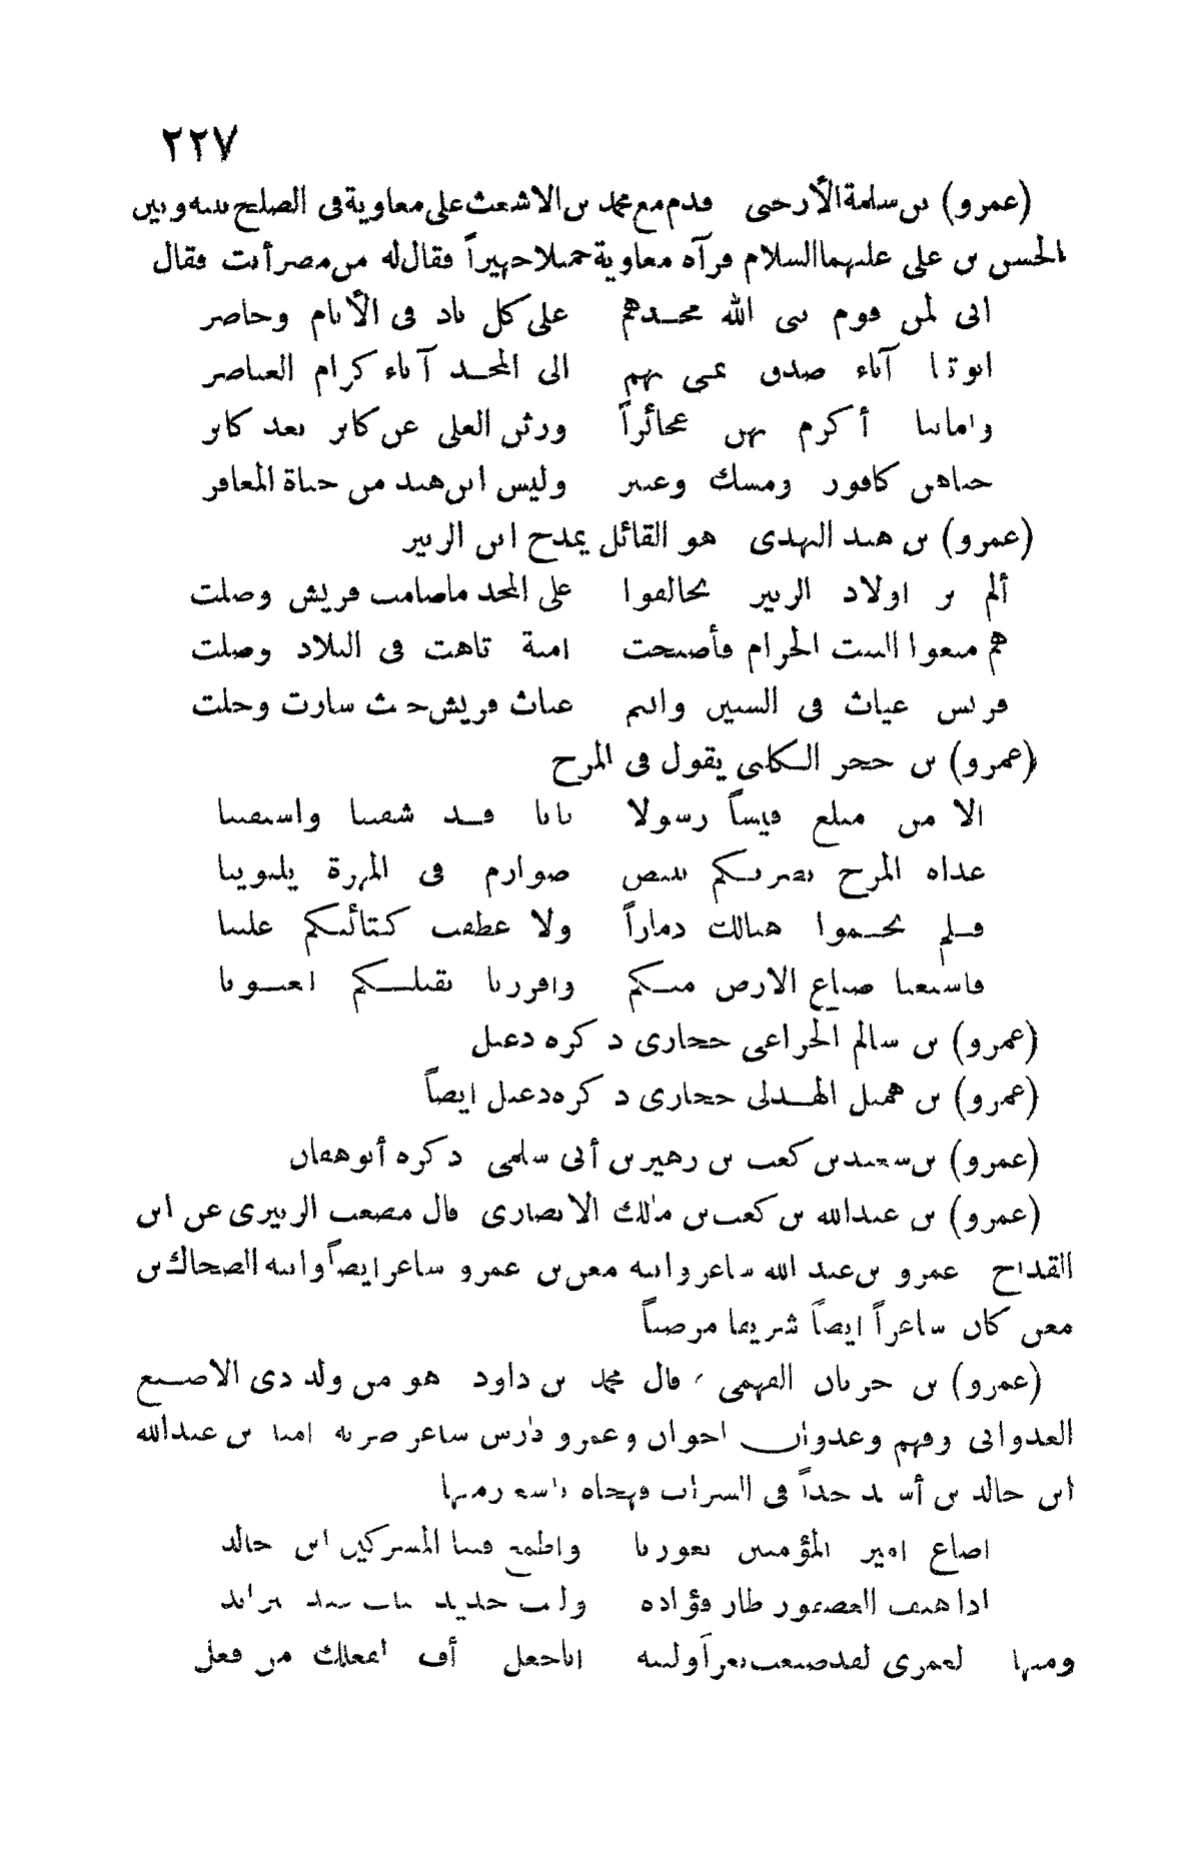 ٢٢٧
(عمرو) بن سلمة الأرحبى قدم مع محمد بن الاشعث على معاوية فى الصلح بينه وبين
الحسن بن على عليهما السلام فرآه معاوية جميلا جهيراً فقال له من مضر أنت فقال
انى لمن قوم بنى الله مجدهم على كل باد فى الأنام وحاضر
ابوتنا آباء صدق نمى بهم الى المجد آباء كرام العناصر
وامانا أكرم بهن عجائزاً ورثن العلى عن كابر بعد كابر
جناهن كافور ومسك وعنبر وليس ابن هند من جناة المعافر
(عمرو) بن هند النهدى هو القائل يمدح ابن الزبير
ألم تر اولاد الزبير تحالفوا على المجد ماصامت قريش وصلت
هم منعوا البيت الحرام فأصبحت امية تاهت فى البلاد وضلت
قريش غياث فى السنين وانتم غياث قريش حيث سارت وحلت
(عمرو) بن حجر الكلبى يقول فى المرج
الا من مبلغ قيساً رسولا بانا قد شفينا واستفينا
غداة المرج نضربكم ببيض صوارم فى المهزة يلتوينا
فلم تحموا هنالك دماراً ولا عطفت كتائبكم علينا
فاسبعنا ضباع الارض منكم واقررنا بقتلكم العيونا
(عمرو) بن سالم الخزاعى حجازى ذكره دعبل
(عمرو) بن هميل الهذلى حجازى ذكره دعبل ايضاً
(عمرو) بن سعيد بن كعب بن زهير بن أبى سلمى ذكره أبو هفان
(عمرو) بن عبدالله بن كعب بن مالك الانصارى قال مصعب الزبيرى عن ابن
القداح عمرو بن عبد الله شاعر وابنه معن بن عمرو شاعر ايضاً وابنه الضحاك بن
معن كان شاعراً ايضاً شريفا مرضياً
(عمرو) بن حرثان الفهمى قال محمد بن داود هو من ولد ذى الاصبع
العدوانى وفهم وعدوان اخوان وعمرو فارس شاعر ضربه امية بن عبدالله
ابن خالد بن أسيد حداً فى الشراب فهجاه باشعار منها
اضاع امير المؤمنين ثغورنا واطمع فينا المشركين ابن خالد
اذا هتف العصفور طار فؤاده وليث حديد الناب عند الثرائد
ومنها لعمرى لقد ضيعت ثغراً وليته اباجعل أف لفعلك من فعل